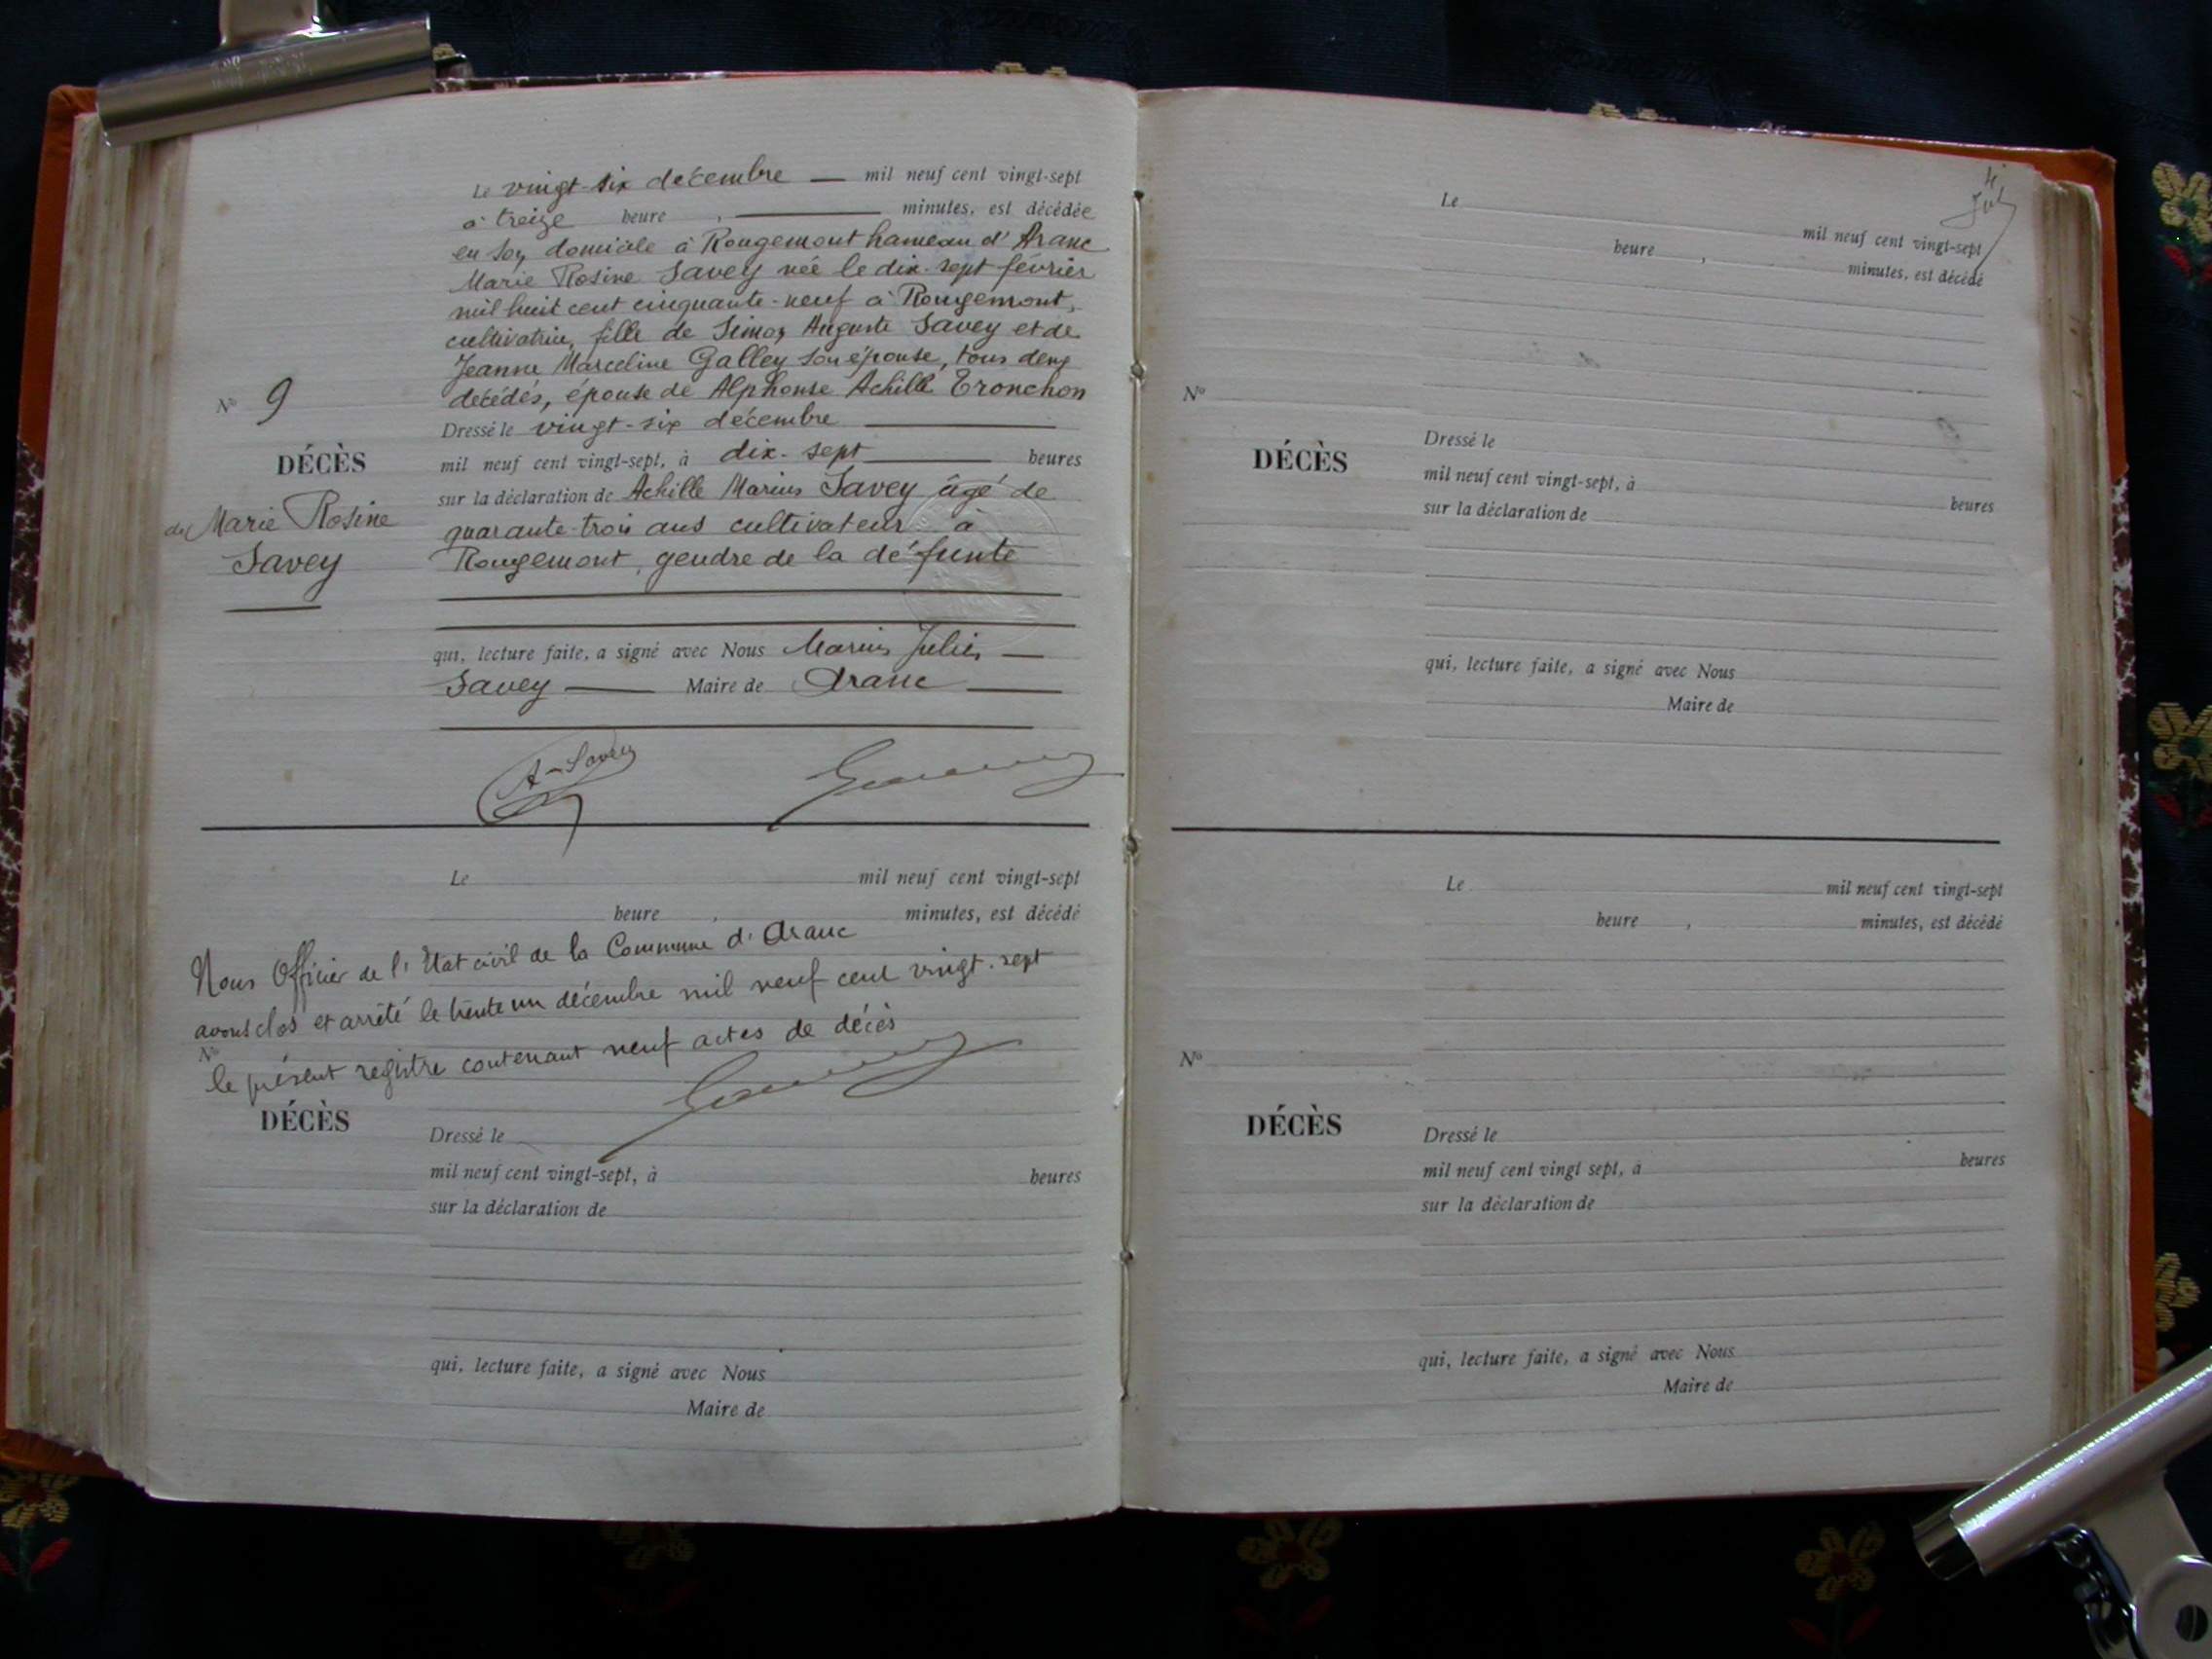 Le vingt-six décembre — mil neuf cent vingt-sept
à treize heure , — minutes, est décédée
en son domicile à Rougemont hameau d'Aranc
Marie Rosine Savey née le dix-sept février
mil huit cent cinquante-neuf à Rougemont,
cultivatrice, fille de Simon Auguste Savey et de
Jeanne Marceline Galley son épouse, tous deux
décédés, épouse de Alphonse Achille Tronchon
N° 9
DÉCÈS
de Marie Rosine
Savey
Dressé le vingt-six décembre —
mil neuf cent vingt-sept, à dix-sept — heures
sur la déclaration de Achille Marius Savey âgé de
quarante-trois ans cultivateur à
Rougemont, gendre de la défunte
qui, lecture faite, a signé avec Nous Marius Julien —
Savey — Maire de Aranc —
A. Savey
Le mil neuf cent vingt-sept
heure , minutes, est décédé
Nous Officier de l'Etat civil de la Commune d'Aranc
avons clos et arrêté le trente un décembre mil neuf cent vingt-sept
N°
le présent registre contenant neuf actes de décès
DÉCÈS
Dressé le
mil neuf cent vingt-sept, à heures
sur la déclaration de
qui, lecture faite, a signé avec Nous
Maire de
4
Le mil neuf cent vingt-sept
heure , minutes, est décédé
N°
DÉCÈS
Dressé le
mil neuf cent vingt-sept, à heures
sur la déclaration de
qui, lecture faite, a signé avec Nous
Maire de
Le mil neuf cent vingt-sept
heure , minutes, est décédé
N°
DÉCÈS
Dressé le
mil neuf cent vingt sept, à heures
sur la déclaration de
qui, lecture faite, a signé avec Nous
Maire de